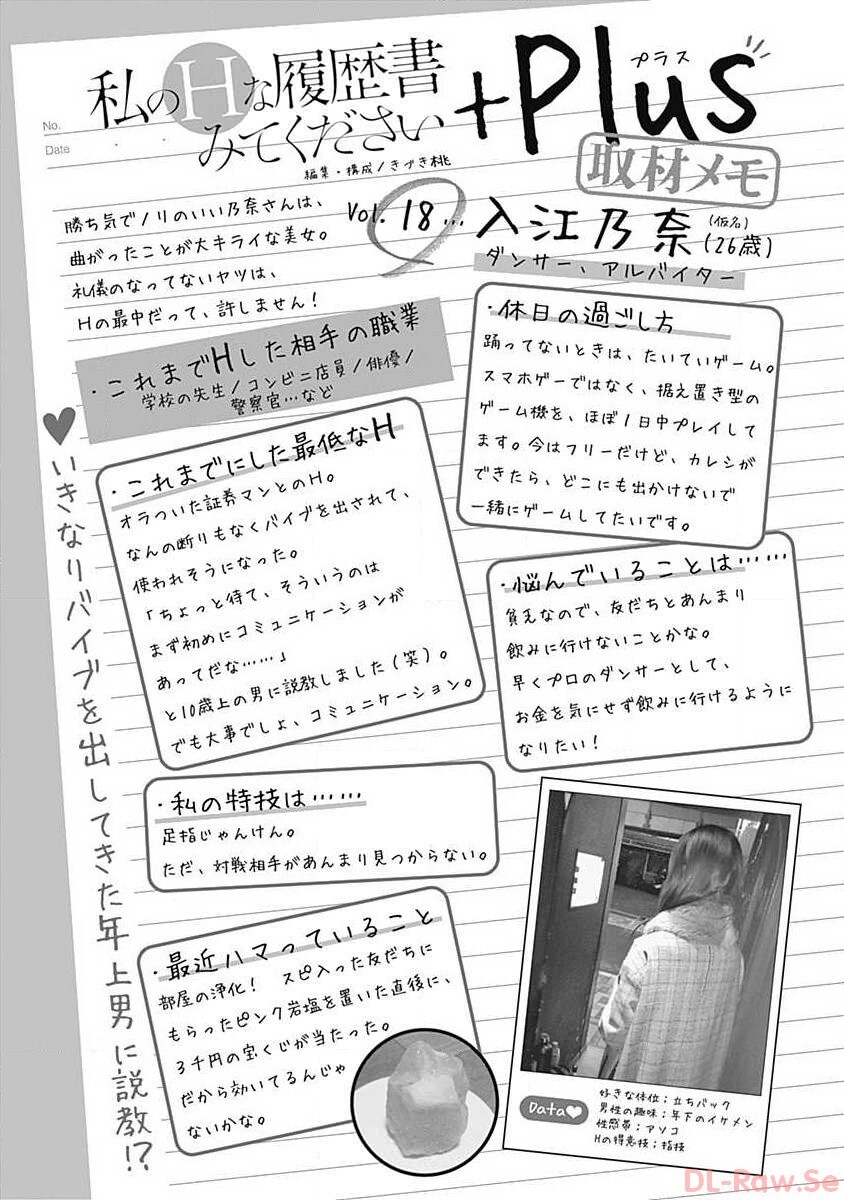 No.
Date
私のHな履歴書
みてください
+Plus
プラス
編集・構成/きづき桃
取材メモ
勝ち気でノリのいい乃奈さんは、
曲がったことが大キライな美女。
礼儀のなってないヤツは、
Hの最中だって、許しません!
Vol. 18...
入江乃奈
(仮名)
(26歳)
ダンサー、アルバイター
・これまでHした相手の職業
学校の先生/コンビニ店員/俳優/
警察官…など
・休日の過ごし方
踊ってないときは、たいていゲーム。
スマホゲーではなく、据え置き型の
ゲーム機を、ほぼ1日中プレイして
ます。今はフリーだけど、カレシが
できたら、どこにも出かけないで
一緒にゲームしてたいです。
♥いきなりバイブを出してきた年上男に説教!?
・これまでにした最低なH
オラついた証券マンとのH。
なんの断りもなくバイブを出されて、
使われそうになった。
「ちょっと待て、そういうのは
まず初めにコミュニケーションが
あってだな……」
と10歳上の男に説教しました(笑)。
でも大事でしょ、コミュニケーション。
・悩んでいることは……
貧乏なので、友だちとあんまり
飲みに行けないことかな。
早くプロのダンサーとして、
お金を気にせず飲みに行けるように
なりたい!
・私の特技は……
足指じゃんけん。
ただ、対戦相手があんまり見つからない。
・最近ハマっていること
部屋の浄化! スピ入った友だちに
もらったピンク岩塩を置いた直後に、
3千円の宝くじが当たった。
だから効いてるんじゃ
ないかな。
Data♥
好きな体位:立ちバック
男性の趣味:年下のイケメン
性感帯:アソコ
Hの得意技:指技
DL-Raw.Se